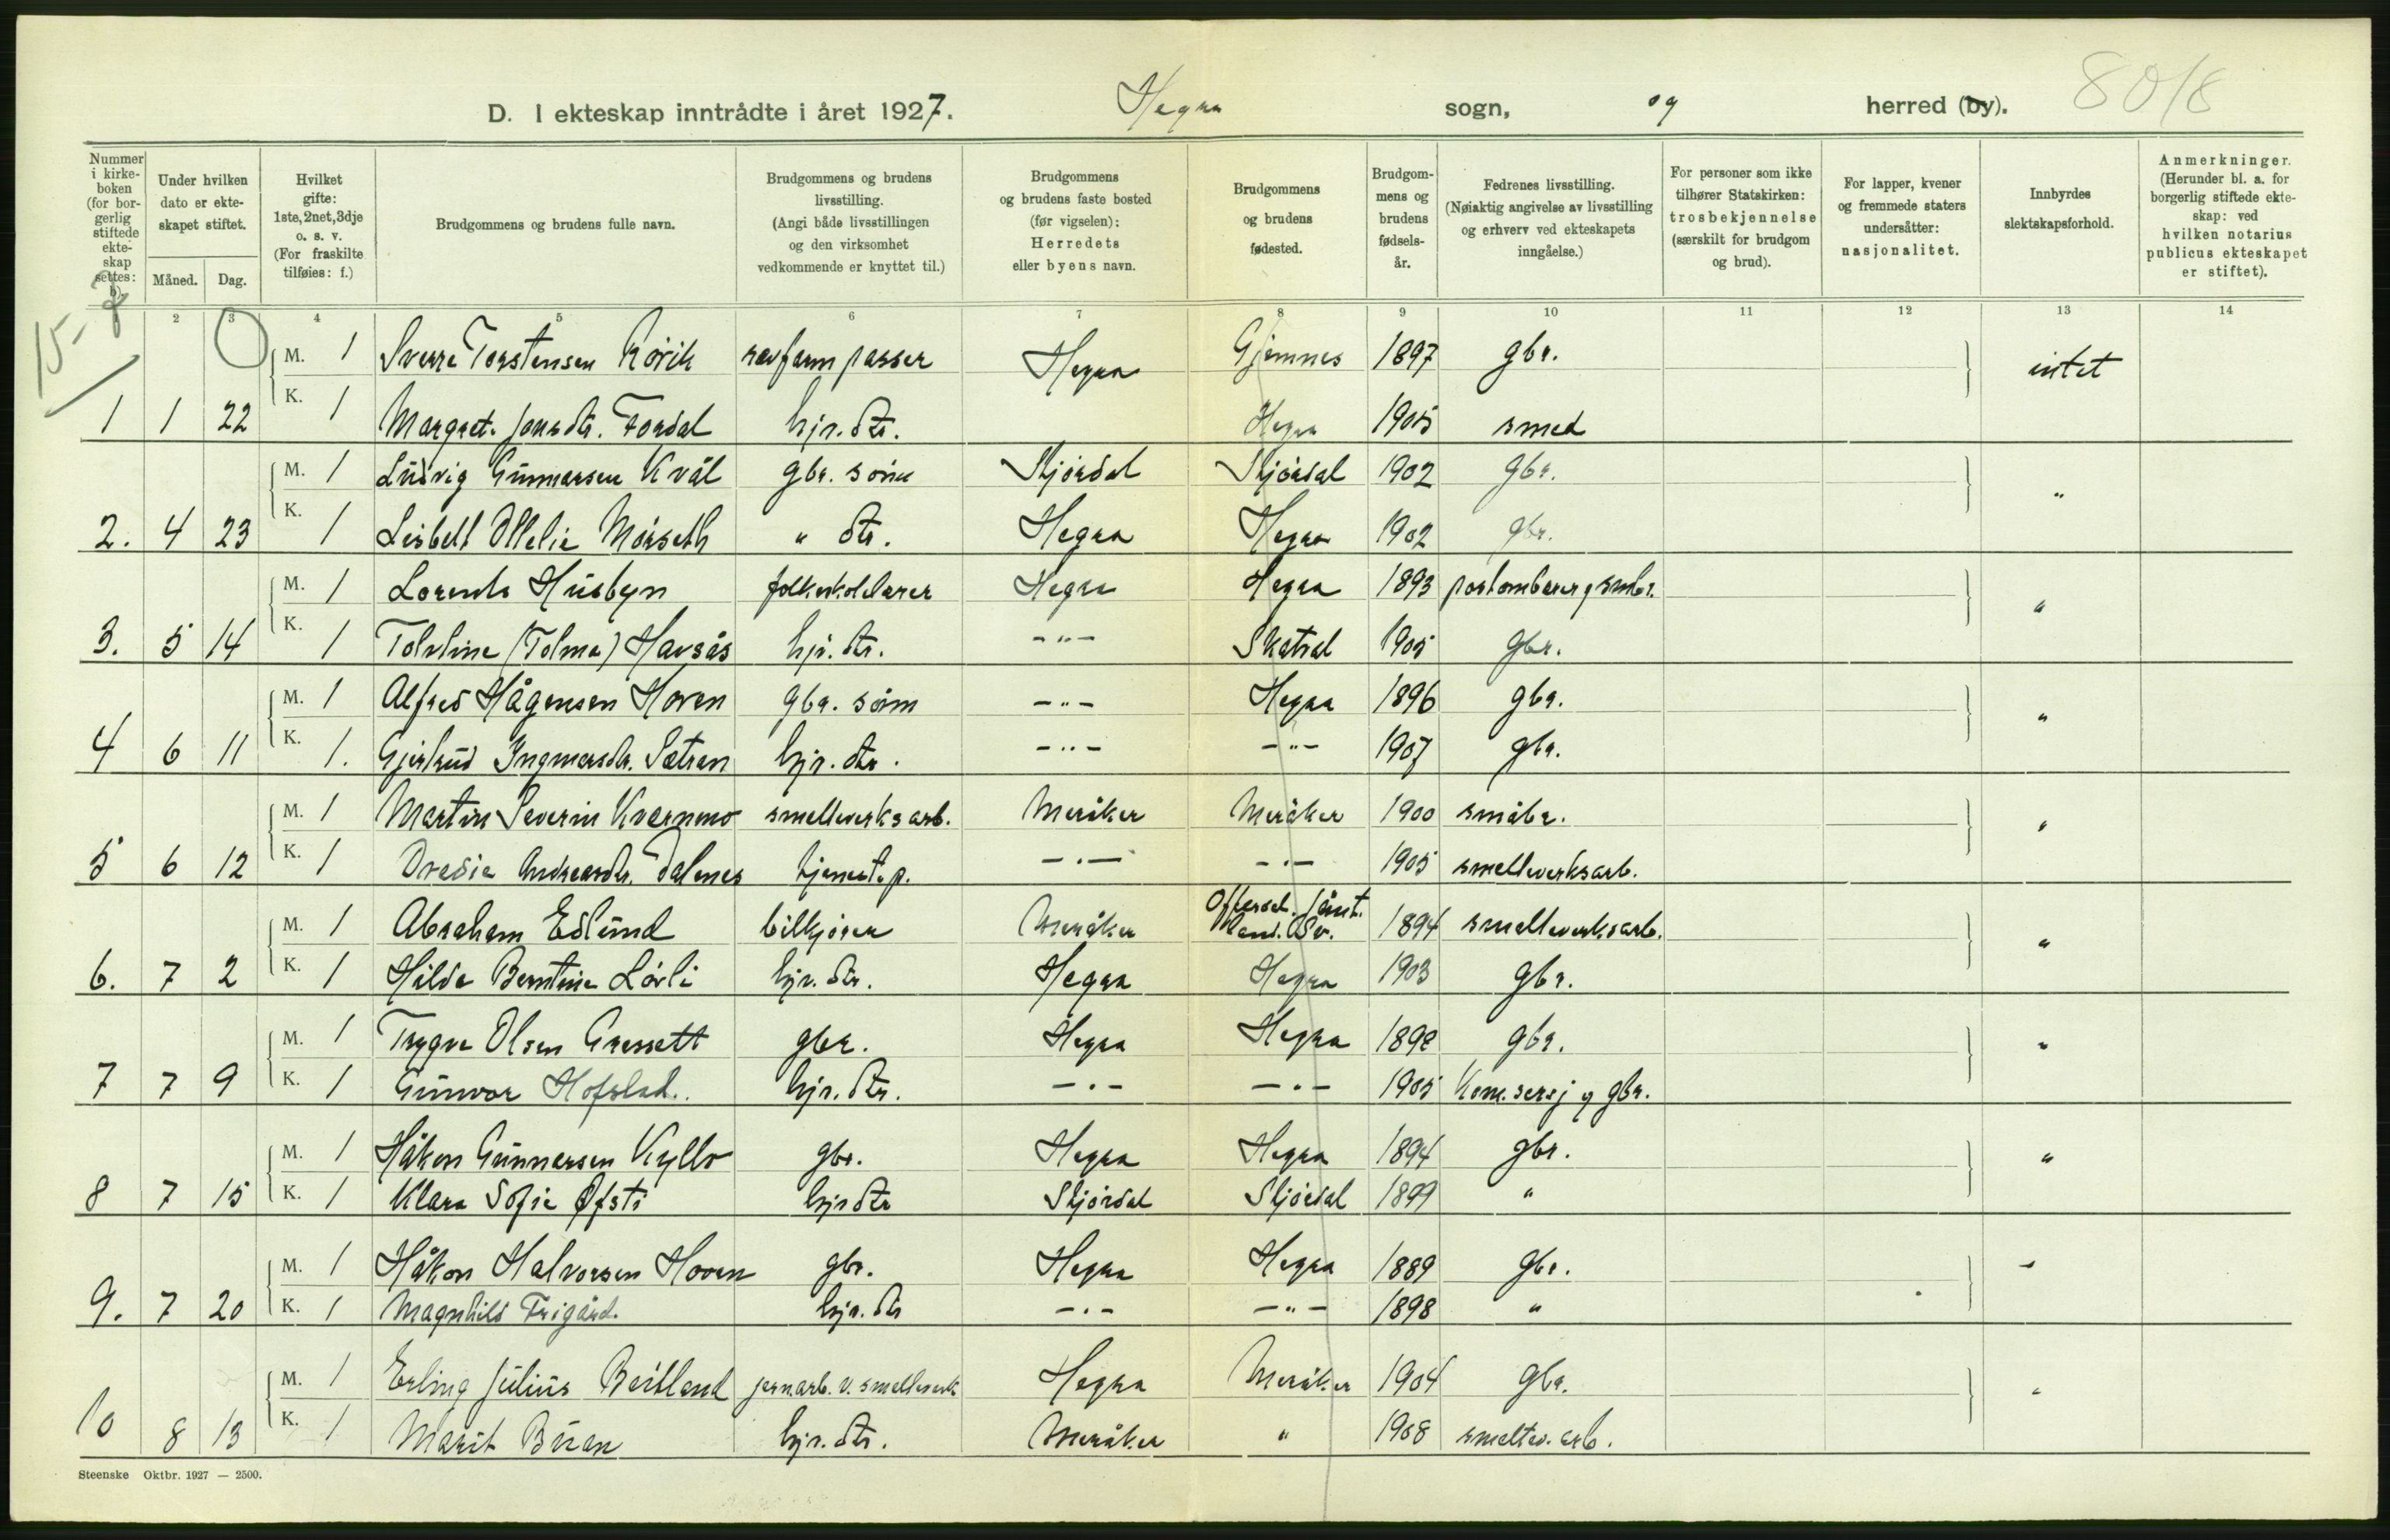 D. I ekteskap inntrådte i året 1927. Hegra sogn, og herred (by). 8018
Nummer i kirkeboken (for borgerlig stiftede ekteskap settes: b).
Under hvilken dato er ekteskapet stiftet.
Måned. Dag.
Hvilket gifte: 1ste, 2net, 3dje o. s. v. (For fraskilte tilføies: f.)
Brudgommens og brudens fulle navn.
Brudgommens og brudens livsstilling. (Angi både livsstillingen og den virksomhet vedkommende er knyttet til.)
Brudgommens og brudens faste bosted (før vigselen): Herredets eller byens navn.
Brudgommens og brudens fødested.
Brudgommens og brudens fødselsår.
Fedrenes livsstilling. (Nøiaktig angivelse av livsstilling og erhverv ved ekteskapets inngåelse.)
For personer som ikke tilhører Statskirken: trosbekjennelse (særskilt for brudgom og brud).
For lapper, kvener og fremmede staters undersåtter: nasjonalitet.
Innbyrdes slektskapsforhold.
Anmerkninger. (Herunder bl. a. for borgerlig stiftede ekteskap: ved hvilken notarius publicus ekteskapet er stiftet).
1 2 3 4 5 6 7 8 9 10 11 12 13 14
15-7
M. 1 Sverre Torstensen Rørik revfarm passer Hegra Gjemnes 1897 gbr. intet
1 1 22 K. 1 Margret Jonsdtr. Fordal hjv. dtr. Hegra 1905 smed
M. 1 Ludvig Gunnarsen Kvål gbr. sønn Stjørdal Stjørdal 1902 gbr. "
2. 4 23 K. 1 Lisbett Ottelie Mørseth " dtr. Hegra Hegra 1902 gbr.
M. 1 Lorents Husbyn folkeskolelærer Hegra Hegra 1893 postombærer g småbr. "
3. 5 14 K. 1 (Tolma) Havsås hjv. dtr. -"- Skatval 1905 gbr.
M. 1 Alfred Hågensen Hoven gbr. sønn -"- Hegra 1896 gbr. "
4 6 11 K. 1. Gjertrud Ingmarsdtr. Sætran hjv. dtr. -"- -"- 1907 gbr.
M. 1 Martin Severin Kvernmo smelteverksarb. Meråker Meråker 1900 småbr. "
5 6 12 K. 1 Andreasdtr. Dalenes tjenestep. -"- -"- 1905 smelteverksarb.
M. 1 Abraham Edlund bilkjører Meråker Offerdal. Jämtland. Sv. 1894 smelteverksarb. "
6. 7 2 K. 1 Hilda Berntine Løvli hjv. dtr. Hegra Hegra 1903 gbr.
M. 1 Trygve Olsen Gressett gbr. Hegra Hegra 1898 gbr. "
7 7 9 K. 1 Gunvor Hofstad. hjv. dtr. -"- -"- 1905 Kom. sersj g gbr.
M. 1 Håkon Gunnarsen Kyllo gbr. Hegra Hegra 1894 gbr. "
8 7 15 K. 1 Klara Sofie Øfsti hjv dtr Stjørdal Stjørdal 1899 "
M. 1 Håkon Halvorsen Hoven gbr. Hegra Hegra 1889 gbr. "
9. 7 20 K. 1 Magnhild Trigård. hjv. dtr -"- -"- 1898 "
M. 1 Erling Julius Beitland jernarb. v. smelteverk Hegra Meråker 1904 gbr. "
10 8 13 K. 1 Marit Buan hjv. dtr. Meråker " 1908 smeltev. arb.
Steenske Oktbr. 1927 — 2500.